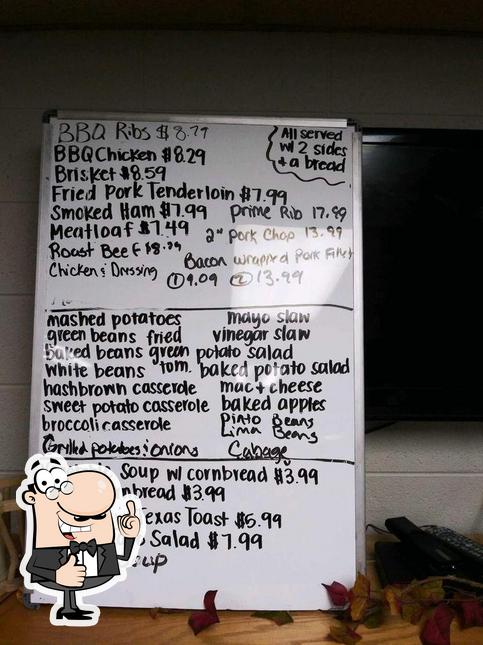 BBQ Ribs $8.79
All served
w/ 2 sides
+ a bread
BBQ Chicken $8.29
Brisket $8.59
Fried Pork Tenderloin $7.99
Smoked Ham $7.99 Prime Rib 17.99
Meatloaf $7.49 2" Pork Chop 13.99
Roast Beef
Bacon wrapped Pork Fillet
Chicken & Dressing ① 9.09 ② 13.99
mashed potatoes mayo slaw
green beans fried vinegar slaw
baked beans green potato salad
white beans tom. baked potato salad
hashbrown casserole mac + cheese
sweet potato casserole baked apples
broccoli casserole Pinto Beans
Lima Beans
Grilled potatoes & onions Cabage
Soup w/ cornbread $3.99
$3.99
Texas Toast $5.99
Salad $7.99